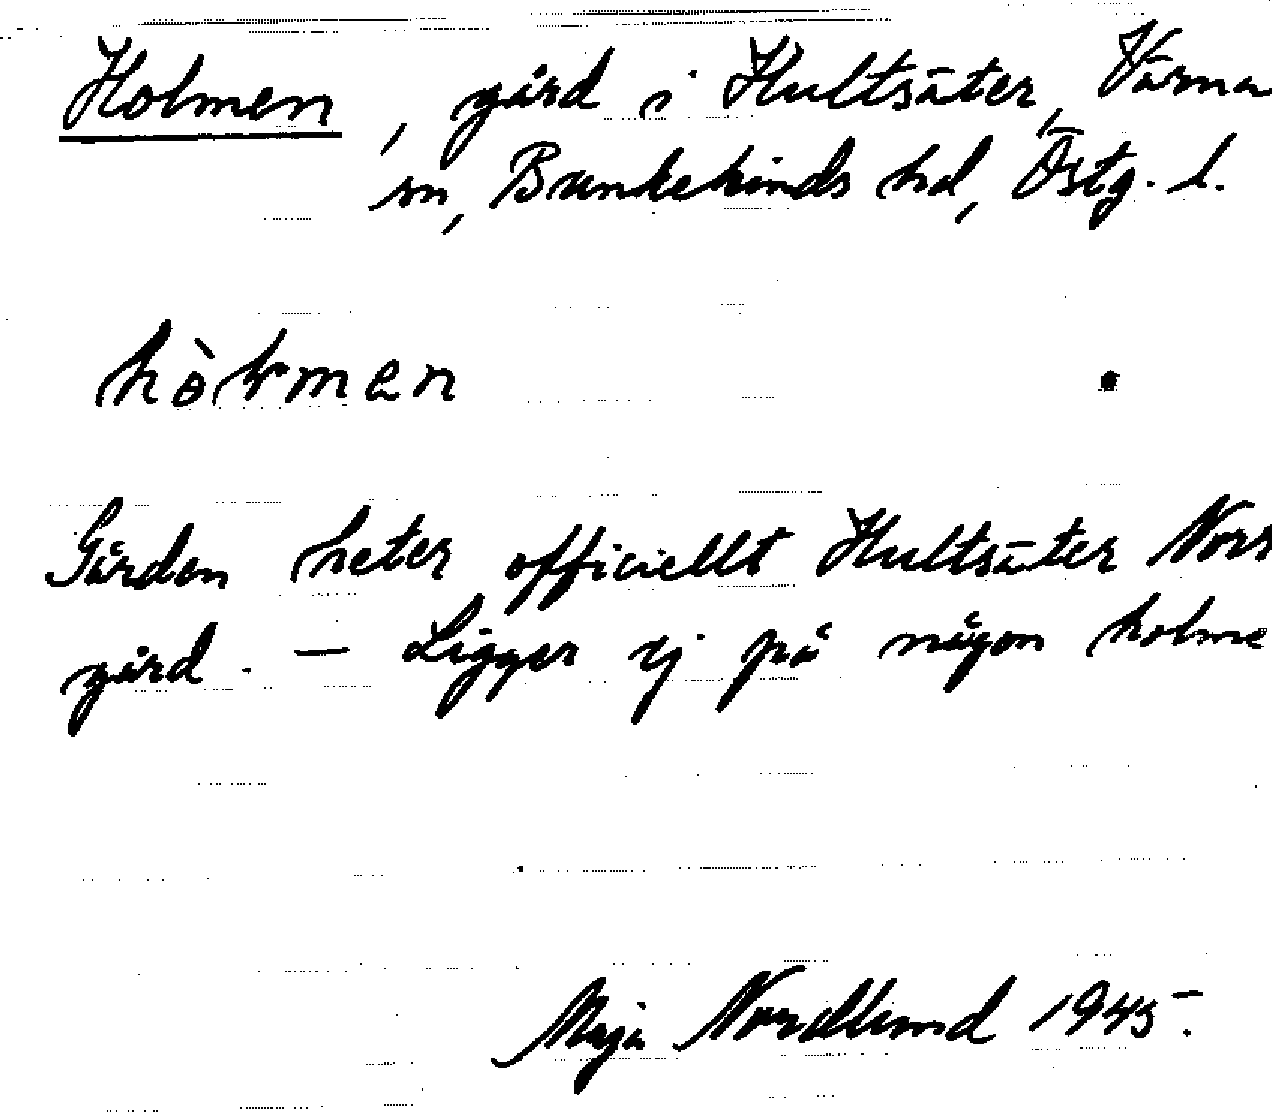 Holmen, gård i Hultsäter, Värna
sn, Bankekinds hd, Östg. l.
Gården heter officiellt Hultsäter Norr
gård. — Ligger ej på någon holme
Maja Nordlund 1945.